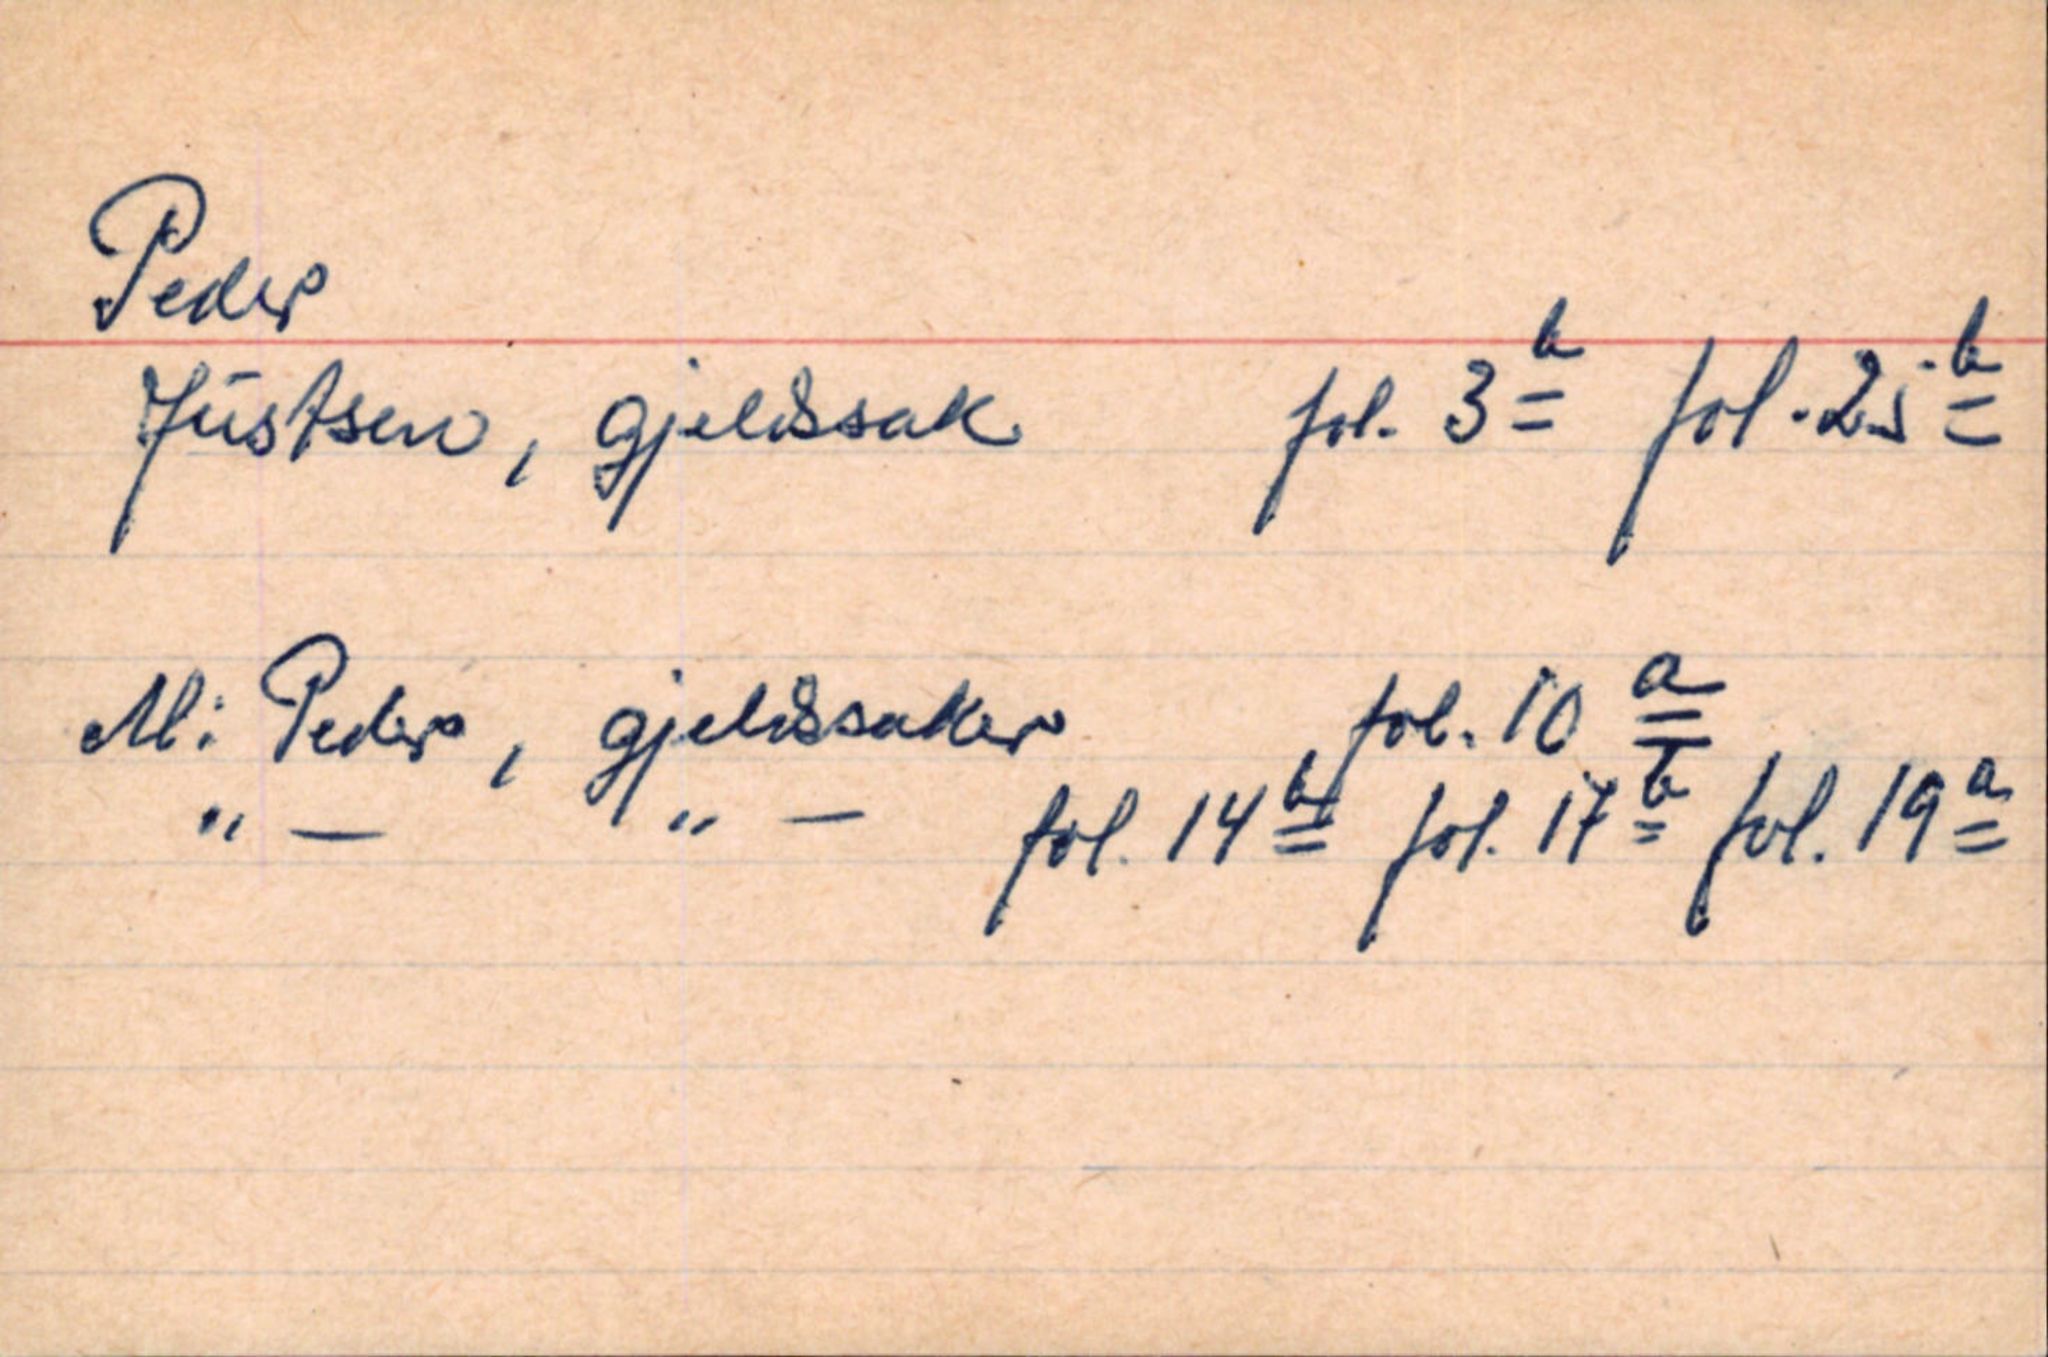 Peder
Jüstsen, gjeldssak fol. 3ᵇ fol. 25ᵇ
M: Peder, gjeldssaker fol. 10ᵃ
" — " — fol. 14ᵇ fol. 17ᵇ fol. 19ᵃ